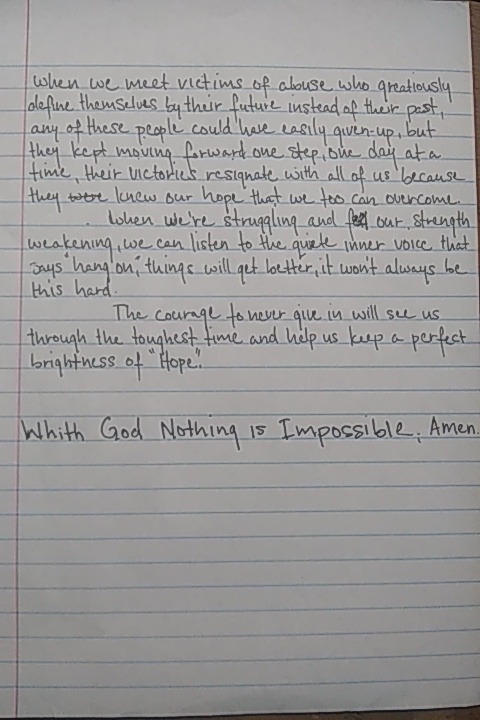 when we meet victims of abuse who greatiously
define themselves by their future instead of their past,
any of these people could have easily given-up, but
they kept moving forward one step, one day at a
time, their victories resignate with all of us because
they knew our hope that we too can overcome.
When we're struggling and our strength
weakening, we can listen to the quite inner voice that
says "hang on," things will get better, it won't always be
this hard.
The courage to never give in will see us
through the toughest time and help us keep a perfect
brightness of "Hope".
Whith God Nothing is Impossible. Amen.